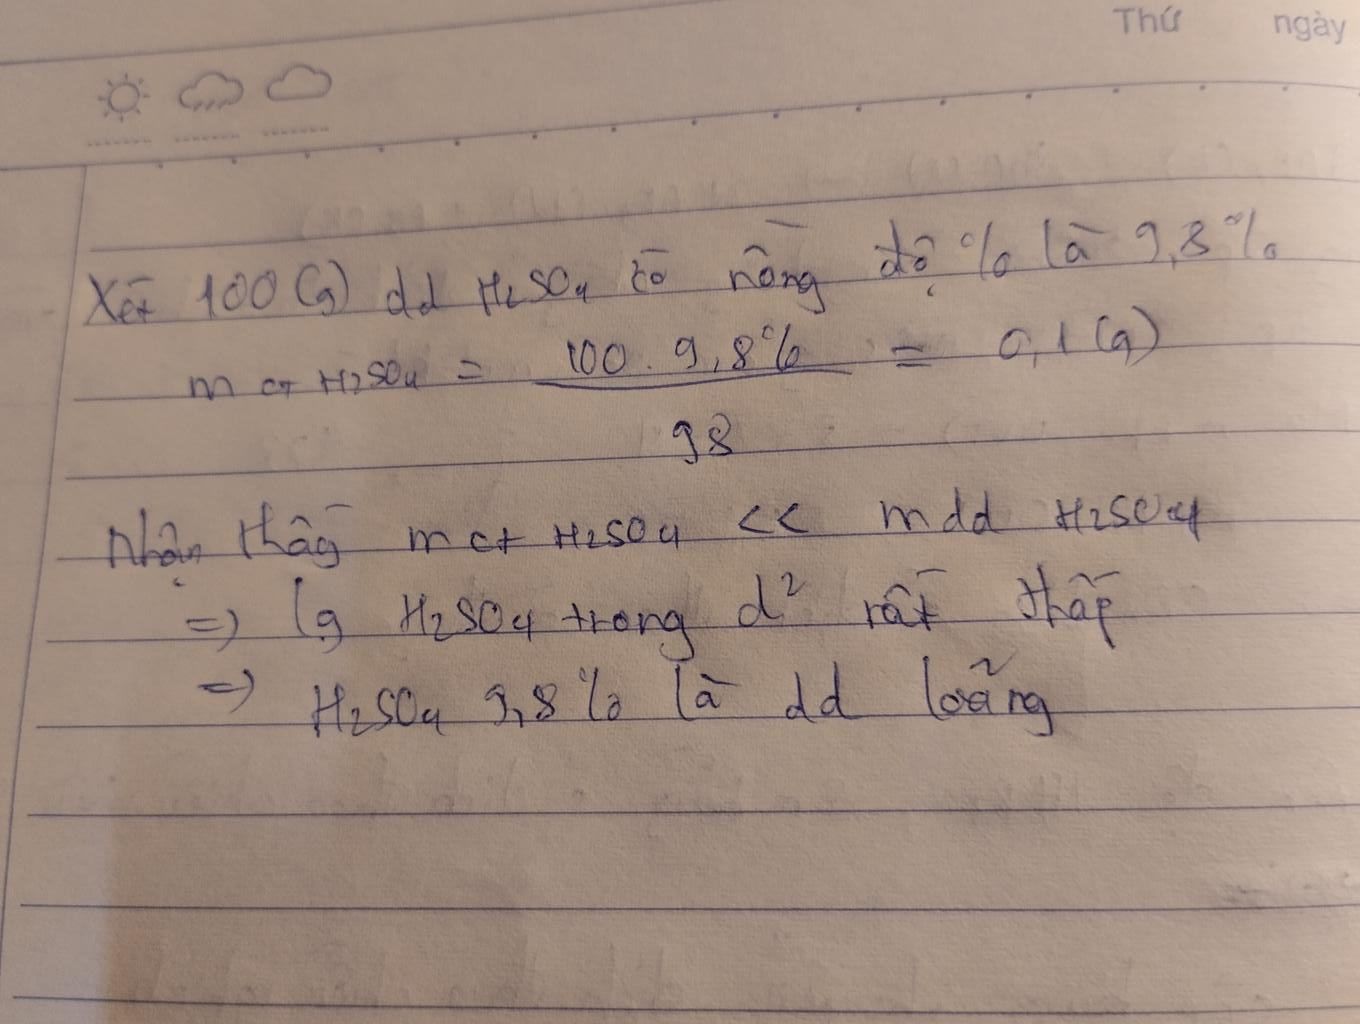 Thứ ngày
Xét 100(g) dd H2SO4 có nồng độ % là 9,8%
m ct H2SO4 = 100 . 9,8% / 98 = 0,1(g)
Nhận thấy m ct H2SO4 << mdd H2SO4
=> lg H2SO4 trong d² rất thấp
=> H2SO4 9,8% là dd loãng